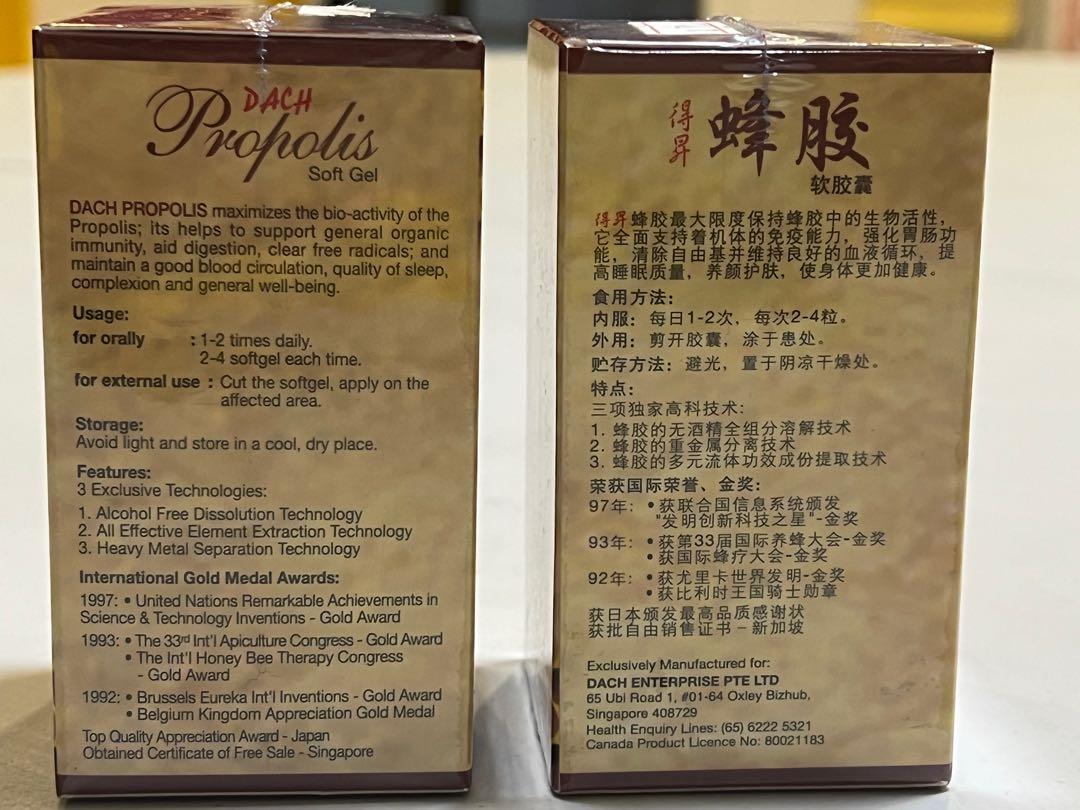 DACH
Propolis
Soft Gel
DACH PROPOLIS maximizes the bio-activity of the
Propolis; its helps to support general organic
immunity, aid digestion, clear free radicals; and
maintain a good blood circulation, quality of sleep,
complexion and general well-being.
Usage:
for orally : 1-2 times daily.
2-4 softgel each time.
for external use : Cut the softgel, apply on the
affected area.
Storage:
Avoid light and store in a cool, dry place.
Features:
3 Exclusive Technologies:
1. Alcohol Free Dissolution Technology
2. All Effective Element Extraction Technology
3. Heavy Metal Separation Technology
International Gold Medal Awards:
1997: • United Nations Remarkable Achievements in
Science & Technology Inventions - Gold Award
1993: • The 33rd Int'l Apiculture Congress - Gold Award
• The Int'l Honey Bee Therapy Congress
- Gold Award
1992: • Brussels Eureka Int'l Inventions - Gold Award
• Belgium Kingdom Appreciation Gold Medal
Top Quality Appreciation Award - Japan
Obtained Certificate of Free Sale - Singapore
得昇
蜂胶
软胶囊
得昇蜂胶最大限度保持蜂胶中的生物活性，
它全面支持着机体的免疫能力，强化胃肠功
能，清除自由基并维持良好的血液循环，提
高睡眠质量，养颜护肤，使身体更加健康。
食用方法：
内服：每日1-2次，每次2-4粒。
外用：剪开胶囊，涂于患处。
贮存方法：避光，置于阴凉干燥处。
特点：
三项独家高科技术：
1. 蜂胶的无酒精全组分溶解技术
2. 蜂胶的重金属分离技术
3. 蜂胶的多元流体功效成份提取技术
荣获国际荣誉、金奖：
97年：• 获联合国信息系统颁发
"发明创新科技之星"-金奖
93年：• 获第33届国际养蜂大会-金奖
• 获国际蜂疗大会-金奖
92年：• 获尤里卡世界发明-金奖
• 获比利时王国骑士勋章
获日本颁发最高品质感谢状
获批自由销售证书 – 新加坡
Exclusively Manufactured for:
DACH ENTERPRISE PTE LTD
65 Ubi Road 1, #01-64 Oxley Bizhub,
Singapore 408729
Health Enquiry Lines: (65) 6222 5321
Canada Product Licence No: 80021183